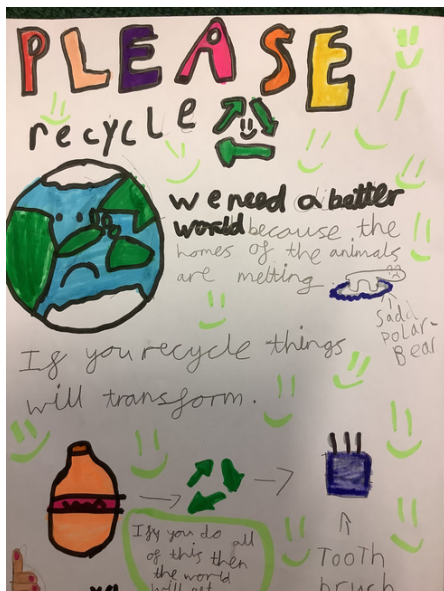 PLEASE
recycle
we need a better
world because the
homes of the animals
are melting
Sadd
polar-
Bear
If you recycle things
will transform.
Ify you do all
of this then
the world
will get
Tooth